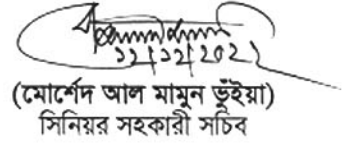 ১২/১২/২০২২
(মোর্শেদ আল মামুন ভুঁইয়া)
সিনিয়র সহকারী সচিব